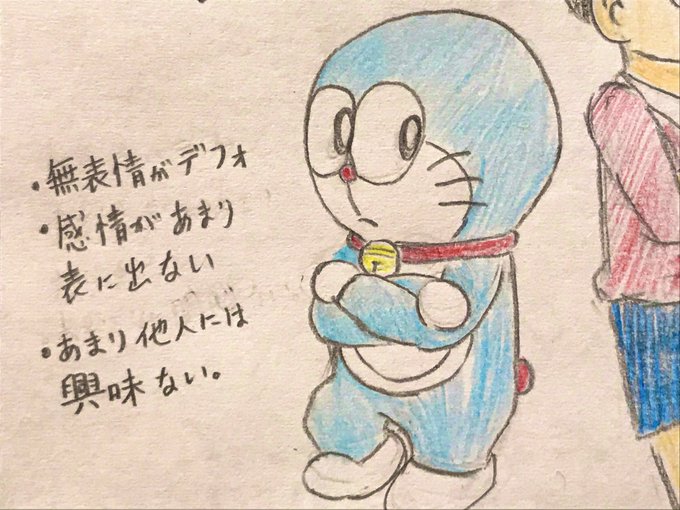 ・無表情がデフォ
・感情があまり
表に出ない
・あまり他人には
興味ない。